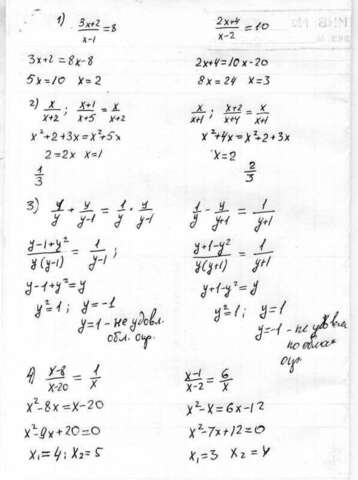 1) (3x+2)/(x-1) = 8
3x+2 = 8x-8
5x=10 x=2
(2x+4)/(x-2) = 10
2x+4=10x-20
8x=24 x=3
2) x/(x+2); (x+1)/(x+5) = x/(x+2)
x²+2+3x=x²+5x
2=2x x=1
1/3
x/(x+1); (x+2)/(x+4) = x/(x+1)
x²+4x=x²+2+3x
x=2
2/3
3) 1/y + y/(y-1) = 1/y · y/(y-1)
(y-1+y²)/(y(y-1)) = 1/(y-1);
y-1+y²=y
y²=1; y=-1
y=1 - не удовл.
обл. опр.
1/y - y/(y+1) = 1/(y+1)
(y+1-y²)/(y(y+1)) = 1/(y+1)
y+1-y²=y
y²=1; y=1
y=-1 - не удовл
по облас
опр.
4) (x-8)/(x-20) = 1/x
x²-8x=x-20
x²-9x+20=0
x₁=4; x₂=5
(x-1)/(x-2) = 6/x
x²-x=6x-12
x²-7x+12=0
x₁=3 x₂=4